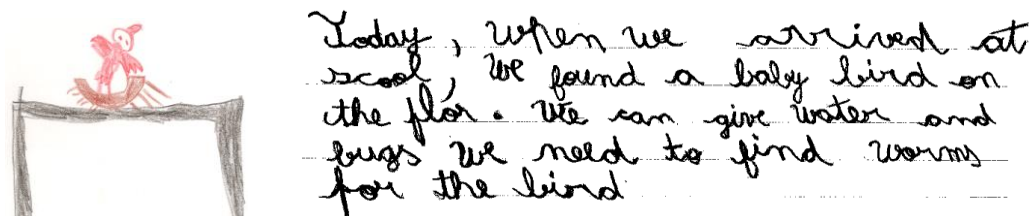 Today, when we arrived at
scool, we found a baby bird on
the flor. We can give water and
bugs we need to find worms
for the bird